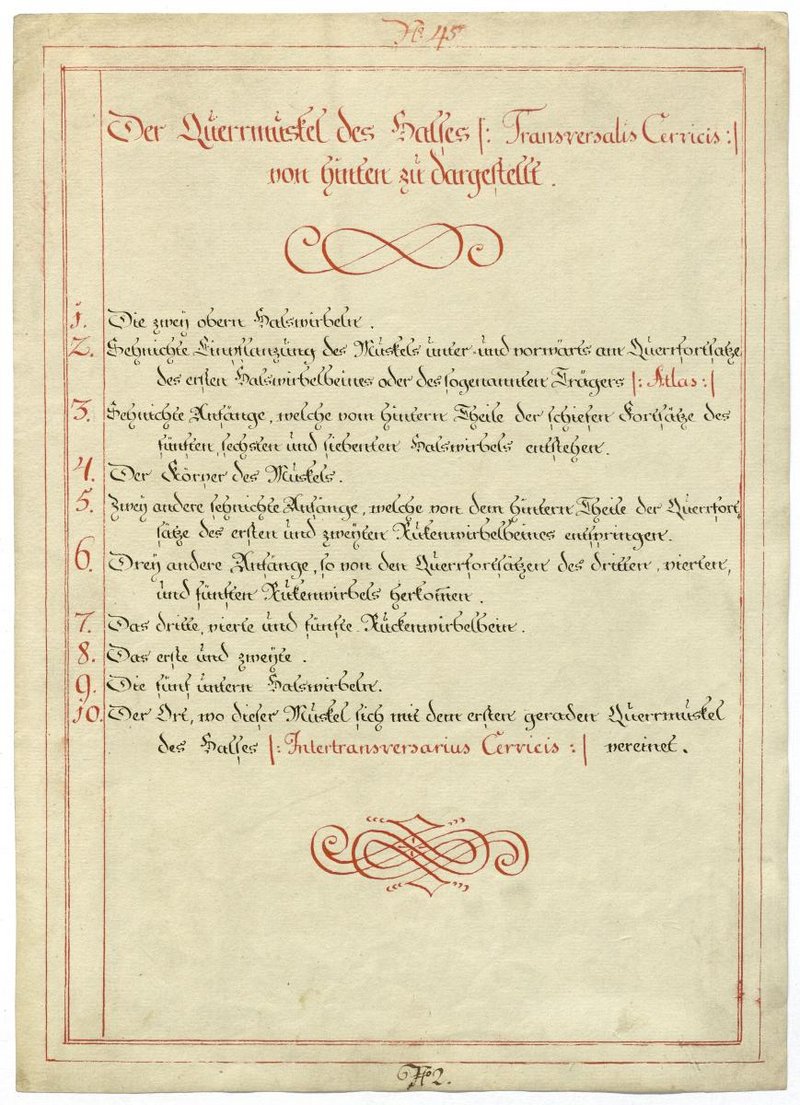 No 45
Der Querrmuskel des Halses |: Transversalis Cervicis :|
von hinten zu dargestellt.
1. Die zwey obern Halswirbeln.
2. Sehnichte Einpflanzung des Muskels unter- und vorwärts am Querrfortsatze
des ersten Halswirbelbeines oder des sogenannten Trägers |: Atlas :|
3. Sehnichte Anfänge, welche vom hintern Theile der schiefen Fortsätze des
fünften, sechsten und siebenten Halswirbels entstehen.
4. Der Körper des Muskels.
5. Zwey andere sehnichte Anfänge, welche von dem hintern Theile der Querrfort
sätze des ersten und zweyten Rükenwirbelbeines entspringen.
6. Drey andere Anfänge, so von den Querrfortsätzen des dritten, vierten,
und fünften Rükenwirbels herkom̄en.
7. Das dritte, vierte und fünfte Rückenwirbelbein.
8. Das erste und zweyte.
9. Die fünf untern Halswirbeln.
10. Der Ort, wo dieser Muskel sich mit dem ersten geraden Querrmuskel
des Halses |: Intertransversarius Cervicis :| vereinet.
No 2.